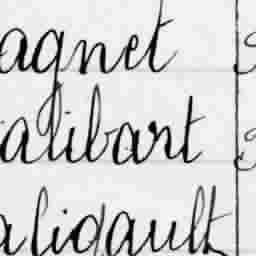 agnet
alibart
aligault